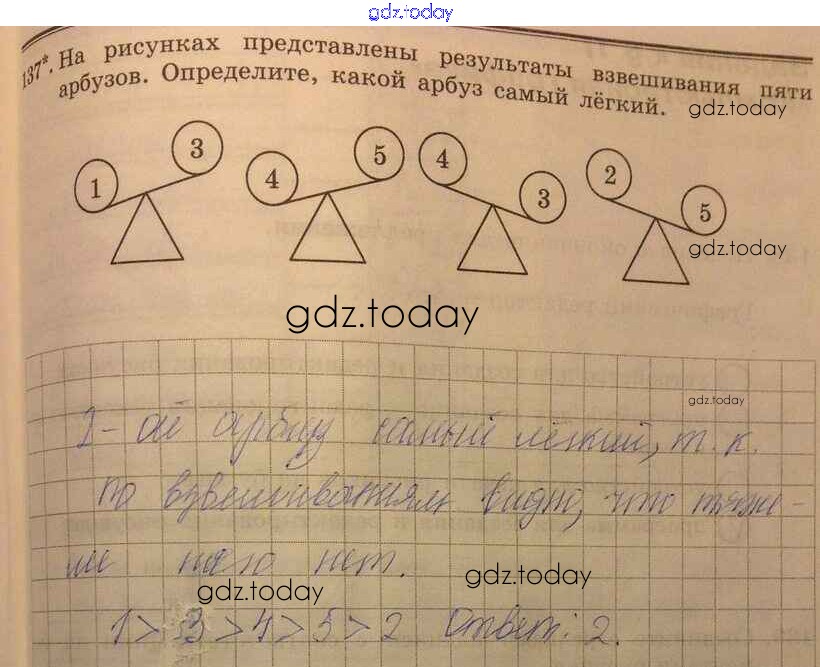 gdz.today
137*. На рисунках представлены результаты взвешивания пяти
арбузов. Определите, какой арбуз самый лёгкий.
gdz.today
1 3 4 5 4 3 2 5
gdz.today
gdz.today
gdz.today
2-ой арбуз самый лёгкий, т.к.
по взвешиваниям видно, что тяже-
ле него нет.
gdz.today gdz.today
1 > 3 > 4 > 5 > 2 Ответ: 2.